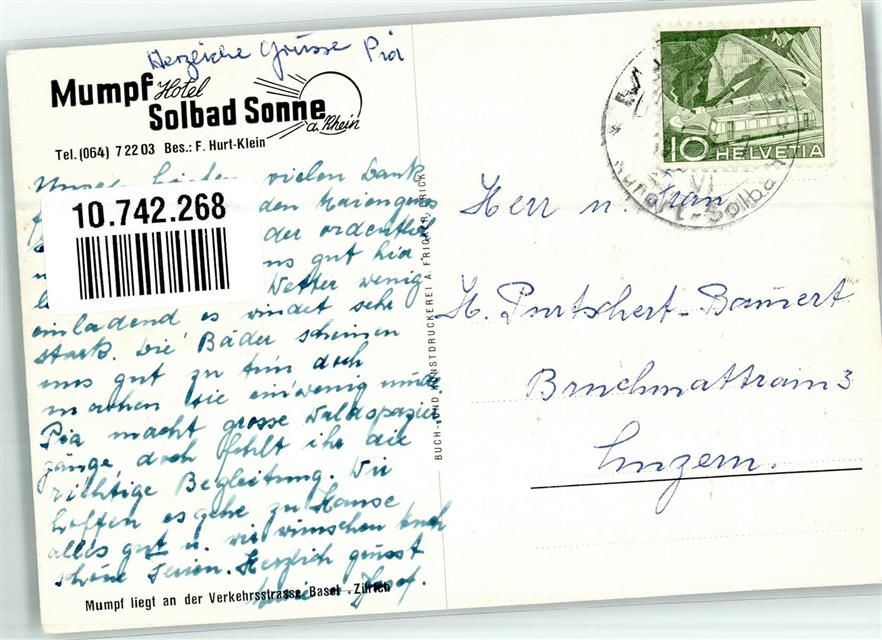 Herzliche Grüsse Pia
Mumpf Hotel
Solbad Sonne
a. Rhein
Tel. (064) 7 22 03 Bes.: F. Hurt-Klein
vielen Dank
10.742.268
den Maiengruss
der
uns gut
Wetter wenig
einladend es windet sehr
stark. Die Bäder scheinen
uns gut zu tun doch
machen sie ein wenig müde
Pia macht grosse Waldspazier
gänge, doch fehlt ihr die
richtige Begleitung. Wir
hoffen es gehe zu Hause
alles gut u. wir wünschen Euch
schöne Ferien. Herzlich grüsst
Josef.
Mumpf liegt an der Verkehrsstrasse Basel - Zürich
BUCH- UND KUNSTDRUCKEREI A. FRICKER, FRICK
10 HELVETIA
VI
Kurort-Solbad
Herr u. Frau
H. Purtschert-Baumert
Bruchmattrain 3
Luzern.